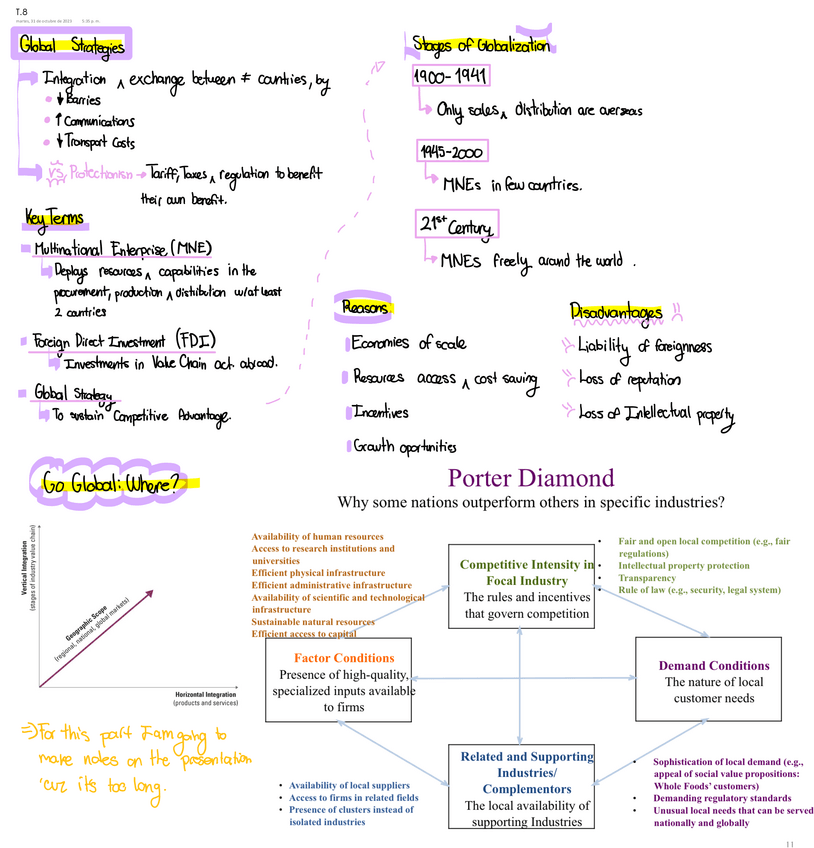 T.8
martes, 31 de octubre de 2023 5:35 p. m.
Global Strategies
Integration ∧ exchange between ≠ countries, by
↓ Barries
↑ Communications
↓ Transport Costs
vs. Protectionism → Tariff, Taxes ∧ regulation to benefit
their own benefit.
Key Terms
Multinational Enterprise (MNE)
Deploys resources ∧ capabilities in the
procurement, production ∧ distribution w/at least
2 countries
Foreign Direct Investment (FDI)
Investments in Value Chain act. abroad.
Global Strategy
To sustain Competitive Advantage.
Stages of Globalization
1900-1941
Only sales ∧ distribution are overseas
1945-2000
MNEs in few countries.
21st Century
MNEs freely around the world.
Reasons
Economies of scale
Resources access ∧ cost saving
Incentives
Growth oportunities
Disadvantages
Liability of foreigness
Loss of reputation
Loss of Intellectual property
Go Global: Where?
Vertical Integration
(stages of industry value chain)
Geographic Scope
(regional, national, global markets)
Horizontal Integration
(products and services)
=> For this part I am going to
make notes on the presentation
'cuz its too long.
Porter Diamond
Why some nations outperform others in specific industries?
Availability of human resources
Access to research institutions and
universities
Efficient physical infrastructure
Efficient administrative infrastructure
Availability of scientific and technological
infrastructure
Sustainable natural resources
Efficient access to capital
Competitive Intensity in
Focal Industry
The rules and incentives
that govern competition
• Fair and open local competition (e.g., fair
regulations)
• Intellectual property protection
• Transparency
• Rule of law (e.g., security, legal system)
Factor Conditions
Presence of high-quality,
specialized inputs available
to firms
Demand Conditions
The nature of local
customer needs
Related and Supporting
Industries/
Complementors
The local availability of
supporting Industries
• Availability of local suppliers
• Access to firms in related fields
• Presence of clusters instead of
isolated industries
• Sophistication of local demand (e.g.,
appeal of social value propositions:
Whole Foods' customers)
• Demanding regulatory standards
• Unusual local needs that can be served
nationally and globally
11